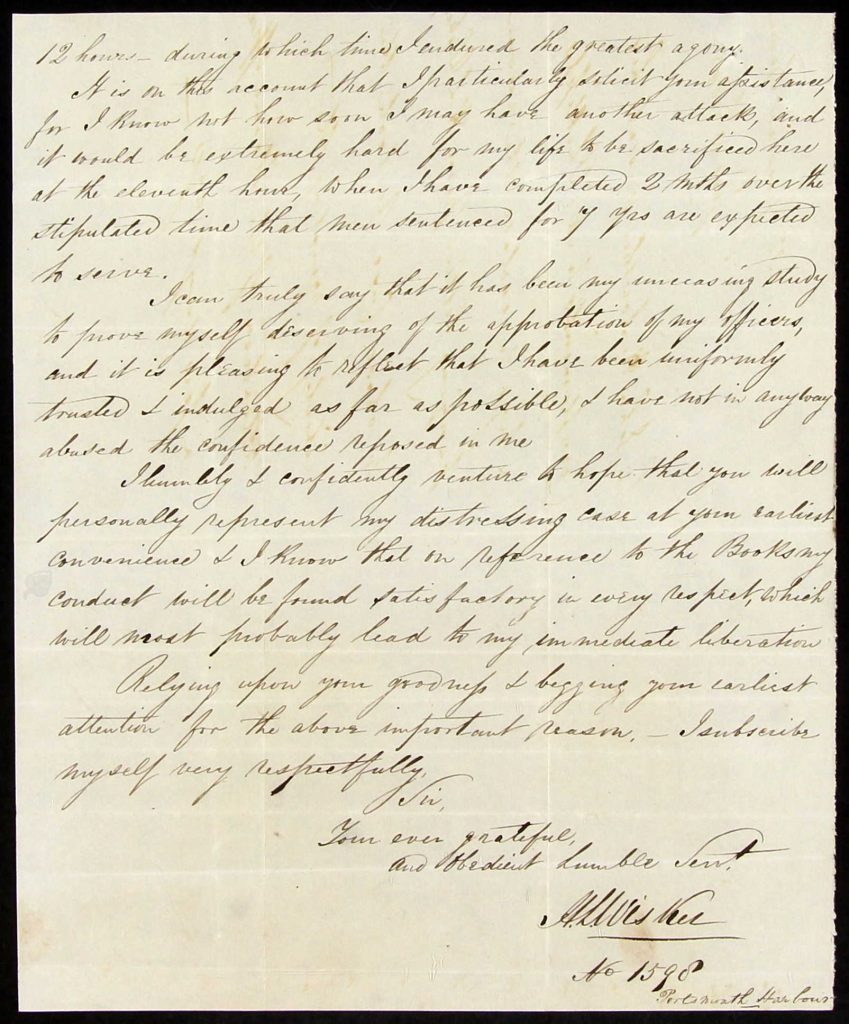 12 hours – during which time I endured the greatest agony.
It is on this account that I particularly solicit your assistance,
for I know not how soon I may have another attack, and
it would be extremely hard for my life to be sacrificed here
at the eleventh hour, when I have completed 2 mths over the
stipulated time that men sentenced for 7 Yrs are expected
to serve.
I can truly say that it has been my unceasing study
to prove myself deserving of the approbation of my officers,
and it is pleasing to reflect that I have been uniformly
trusted & indulged as far as possible, & have not in anyway
abused the confidence reposed in me
I humbly & confidently venture to hope that you will
personally represent my distressing case at your earliest
convenience & I know that on reference to the Books my
conduct will be found satisfactory in every respect, which
will most probably lead to my immediate liberation
Relying upon your goodness & begging your earliest
attention for the above important reason. – I subscribe
myself very respectfully,
Sir,
Your ever grateful,
and Obedient humble Servt.
No 1598
Portsmouth Harbour